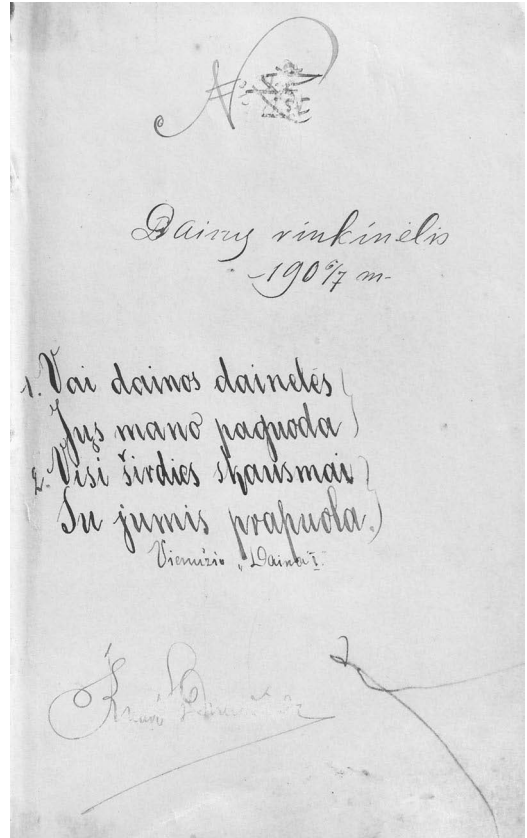 N
Dainų rinkinėlis
1906/7 m-
1. Vai dainos dainelės
Jųs mano paguoda
2. Visi širdies skausmai
Su jumis prapuola.
Vienužio „Daina" I